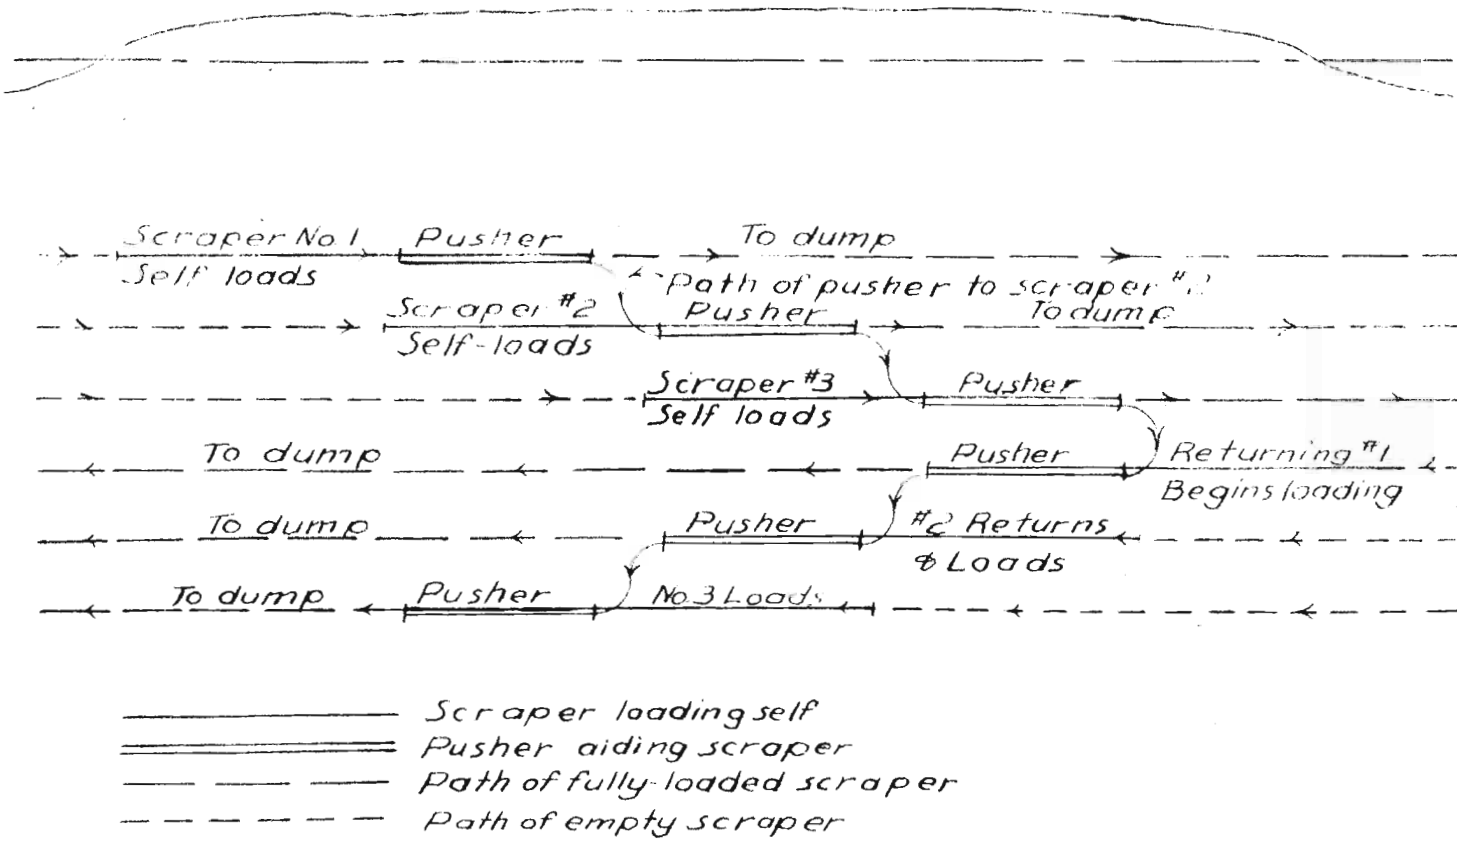 Scraper No. 1 Pusher To dump
Self loads
Path of pusher to scraper
Scraper #2 Pusher To dump
Self-loads
Scraper #3 Pusher
Self loads
To dump Pusher Returning #1
Begins loading
To dump Pusher #2 Returns
& Loads
To dump Pusher No. 3 Loads
Scraper loading self
Pusher aiding scraper
Path of fully-loaded scraper
Path of empty scraper